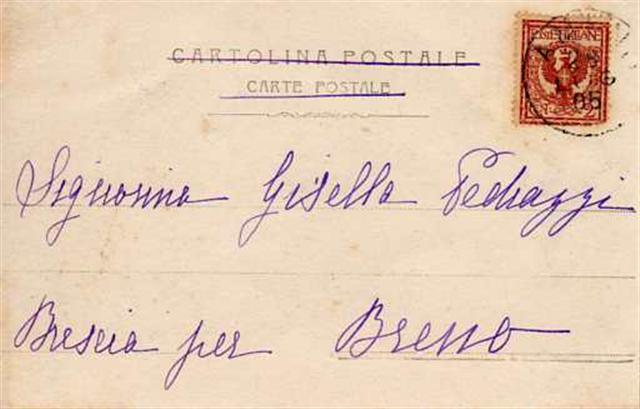 CARTOLINA POSTALE
CARTE POSTALE
POSTE ITALIANE
2
05
Signorina Gisella Pedrazzi
Brescia per Breno